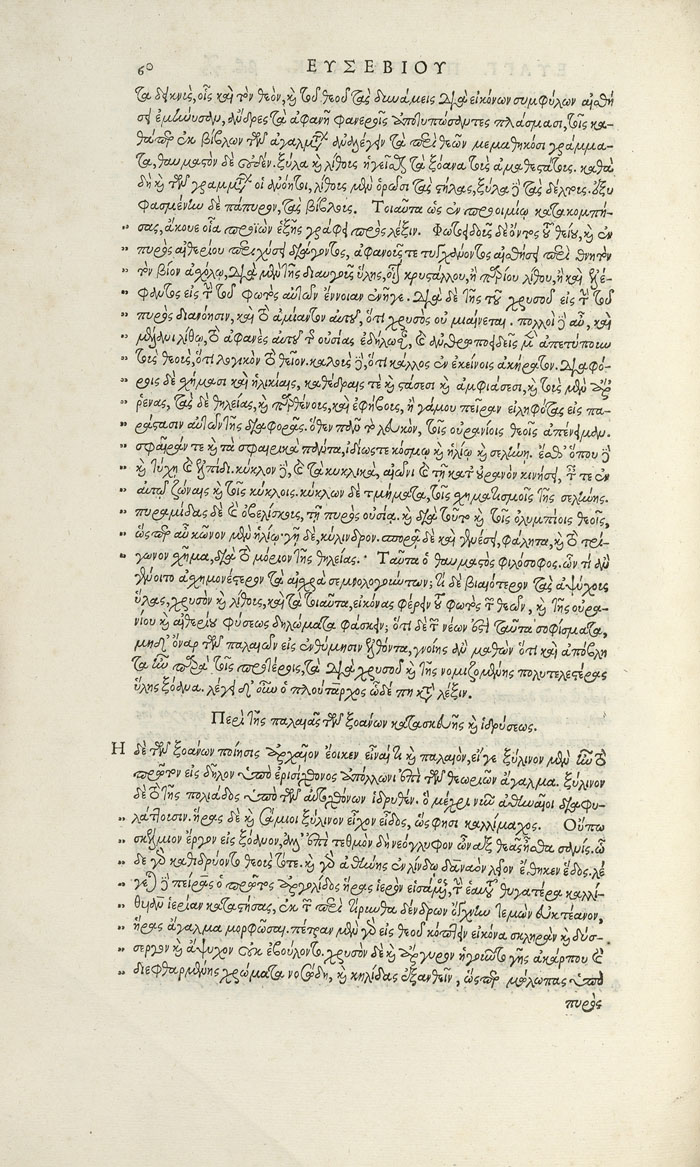 60 ΕΥΣΕΒΙΟΥ
τα δεικνὺς, οἷς καὶ τὸν θεὸν, καὶ τοῦ θεοῦ τὰς δυνάμεις διὰ εἰκόνων συμφύλων αἰσθή
σει ἐμήνυσαν, ἄνδρες τὰ ἀφανῆ φανεροῖς ἀποτυπώσαντες πλάσμασι, τοῖς κα-
θάπερ ἐκ βίβλων τῶν ἀγαλμάτων ἀναλέγειν τὰ περὶ θεῶν μεμαθηκόσι γράμμα-
τα, θαυμαστὸν δὲ οὐδὲν. ξύλα καὶ λίθους ἡγεῖσθαι τὰ ξόανα τοὺς ἀμαθεστάτους. καθὰ
δὴ καὶ τῶν γραμμάτων οἱ ἀνόητοι, λίθους μὲν ὁρῶσι τὰς στήλας, ξύλα δὲ τὰς δέλτους. ἐξυ
φασμένην δὲ πάπυρον, τὰς βίβλους. Τοιαῦτα ὡς ἐν προοιμίῳ κατακομπή-
σας, ἄκουε οἷα προϊὼν ἑξῆς γράφει πρὸς λέξιν. Φωτοειδοῦς δὲ ὄντος τοῦ θείου, καὶ ἐν
πυρὸς αἰθερίου περιχύσει διάγοντος, ἀφανοῦς τε τυγχάνοντος αἰσθήσει περὶ θνητὸν
τὸν βίον ἀσχόλῳ, διὰ μὲν τῆς διαυγοῦς ὕλης, οἷον κρυστάλλου, ἢ παρίου λίθου, ἢ καὶ ἐλέ-
φαντος εἰς τὴν τοῦ φωτὸς αὐτῶν ἔννοιαν ἐνῆγε. διὰ δὲ τῆς τοῦ χρυσοῦ εἰς τὴν τοῦ
πυρὸς διανόησιν, καὶ τὸ ἀμίαντον αὐτοῦ, ὅτι χρυσὸς οὐ μιαίνεται. πολλοὶ δὲ αὖ, καὶ
μέλανι λίθῳ, τὸ ἀφανὲς αὐτοῦ τῆς οὐσίας ἐδήλωσαν, καὶ ἀνθρωποειδεῖς μὲν ἀπετύπουν
τοὺς θεοὺς, ὅτι λογικὸν τὸ θεῖον. καλοὺς δὲ, ὅτι κάλλος ἐν ἐκείνοις ἀκήρατον. διαφό-
ροις δὲ σχήμασι καὶ ἡλικίαις, καθέδραις τε καὶ στάσεσι καὶ ἀμφιάσεσι, καὶ τοὺς μὲν ἄρ
ρενας, τὰς δὲ θηλείας, καὶ παρθένους, καὶ ἐφήβους, ἢ γάμου πεῖραν εἰληφότας εἰς πα-
ράστασιν αὐτῶν τῆς διαφορᾶς. ὅθεν πᾶν τὸ λευκὸν, τοῖς οὐρανίοις θεοῖς ἀπένειμαν.
σφαῖράν τε καὶ τὰ σφαιρικὰ πάντα, ἰδίως τε κόσμῳ καὶ ἡλίῳ καὶ σελήνῃ. ἔσθ' ὅπου δὲ
καὶ τύχῃ καὶ ἐλπίδι. κύκλον δὲ, καὶ τὰ κυκλικὰ, αἰῶνι καὶ τῇ κατ' οὐρανὸν κινήσει, ταῖς τε ἐν
αὐτῷ ζώναις καὶ τοῖς κύκλοις. κύκλων δὲ τμήματα, τοῖς σχηματισμοῖς τῆς σελήνης.
πυραμίδας δὲ καὶ ὀβελίσκους, τῇ πυρὸς οὐσίᾳ. καὶ διὰ τοῦτο καὶ τοῖς ὀλυμπίοις θεοῖς,
ὥσπερ αὖ κῶνον μὲν ἡλίῳ· γῇ δὲ, κύλινδρον. σπορᾷ δὲ καὶ γενέσει, φάλητα, καὶ τὸ τρί-
γωνον σχῆμα, διὰ τὸ μόριον τῆς θηλείας. Ταῦτα ὁ θαυμαστὸς φιλόσοφος. ὧν τί ἂν
γένοιτο ἀσχημονέστερον τὰ αἰσχρὰ σεμνολογούντων; τί δὲ βιαιότερον τὰς ἀψύχους
ὕλας, χρυσὸν καὶ λίθους, καὶ τὰ τοιαῦτα, εἰκόνας φέρειν τοῦ φωτὸς τῶν θεῶν, καὶ τῆς οὐρα-
νίου καὶ αἰθερίου φύσεως δηλώματα φάσκειν; ὅτι δὲ τῶν νέων ἐστὶ ταῦτα σοφίσματα,
μηδ' ὄναρ τῶν παλαιῶν εἰς ἐνθύμησιν ἐλθόντα, γνοίης ἂν μαθὼν ὅτι καὶ ἀπόβλη
τα ἦν παρὰ τοῖς προτέροις, τὰ διὰ χρυσοῦ καὶ τῆς νομιζομένης πολυτελεστέρας
ὕλης ξόανα. λέγει δ' οὖν ὁ πλούταρχος ὧδέ πη κατὰ λέξιν.
Περὶ τῆς παλαιᾶς τῶν ξοάνων κατασκευῆς καὶ ἱδρύσεως.
Η δὲ τῶν ξοάνων ποίησις ἀρχαῖον ἔοικεν εἶναί τι καὶ παλαιὸν, εἴγε ξύλινον μὲν ἦν τὸ
πρῶτον εἰς δῆλον ὑπὸ ἐρισίχθονος ἀπόλλωνι ἐπὶ τῶν θεωριῶν ἄγαλμα. ξύλινον
δὲ τὸ τῆς πολιάδος ὑπὸ τῶν αὐτοχθόνων ἱδρυθέν. ὃ μέχρι νῦν ἀθηναῖοι διαφυ-
λάττουσιν. ἥρας δὲ καὶ σάμιοι ξύλινον εἶχον εἶδος, ὥς φησι καλλίμαχος. Οὔπω
σκέλμιον ἔργον εἰς ξόανον, ἀλλ' ἐπὶ τεθμὸν δηνεόγλυφον ὦναξ θεᾶς ἦσθα σανίς. ὧ
δε γὰρ καθιδρύοντο θεοὺς τότε. καὶ γὰρ ἀθήνης ἐν λίνδῳ δαναὸν λεῖον ἔθηκεν ἕδος. λέ
γεται δὲ πείρας ὁ πρῶτος ἀργολίδος ἥρας ἱερὸν εἱσάμενος, τὴν ἑαυτοῦ θυγατέρα καλλί-
θυιαν ἱέρειαν καταστήσας, ἐκ τῶν περὶ τίρυνθα δένδρων ὄγχνην τεμὼν εὐκτέανον,
ἥρας ἄγαλμα μορφῶσαι. πέτραν μὲν γὰρ εἰς θεοῦ κόπτειν εἰκόνα σκληρὰν καὶ δύσ-
σεργον καὶ ἄψυχον οὐκ ἐβούλοντο. χρυσὸν δὲ καὶ ἄργυρον ἡγοῦντο γῆς ἀκάρπου καὶ
διεφθαρμένης χρώματα νοσώδη, καὶ κηλίδας ἐξανθεῖν, ὥσπερ μώλωπας ὑπὸ
πυρὸς